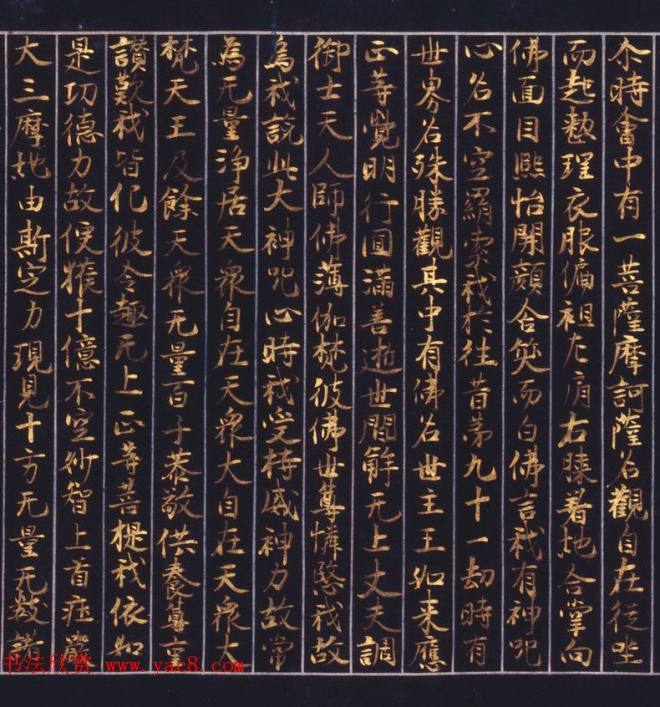 尒時會中有一菩薩摩訶薩名觀自在從坐
而起整理衣服偏袒左肩右膝著地合掌向
佛面目熙怡開顔含笑而白佛言我有神呪
心名不空羂索我於往昔第九十一劫時有
世界名殊勝觀其中有佛名世主王如来應
正等覺明行圓滿善逝世間解无上丈夫調
御士天人師佛薄伽梵彼佛世尊憐愍我故
為我說此大神呪心時我受持威神力故常
為无量淨居天衆自在天衆大自在天衆大
梵天王及餘天衆无量百千恭敬供養尊重
讃歎我皆化彼令趣无上正等菩提我依如
是功德力故便獲十億不空妙智上首症嚴
大三摩地由斯定力現見十方无量无數諸
书法欣赏 www.yac8.com